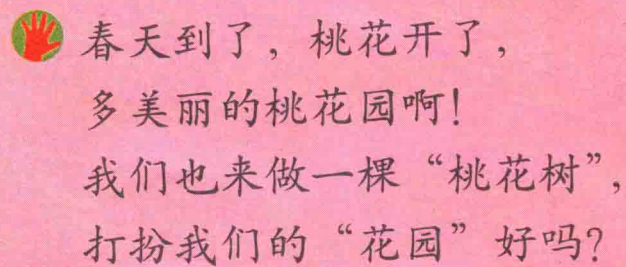 春天到了，桃花开了，
多美丽的桃花园啊！
我们也来做一棵“桃花树”，
打扮我们的“花园”好吗？